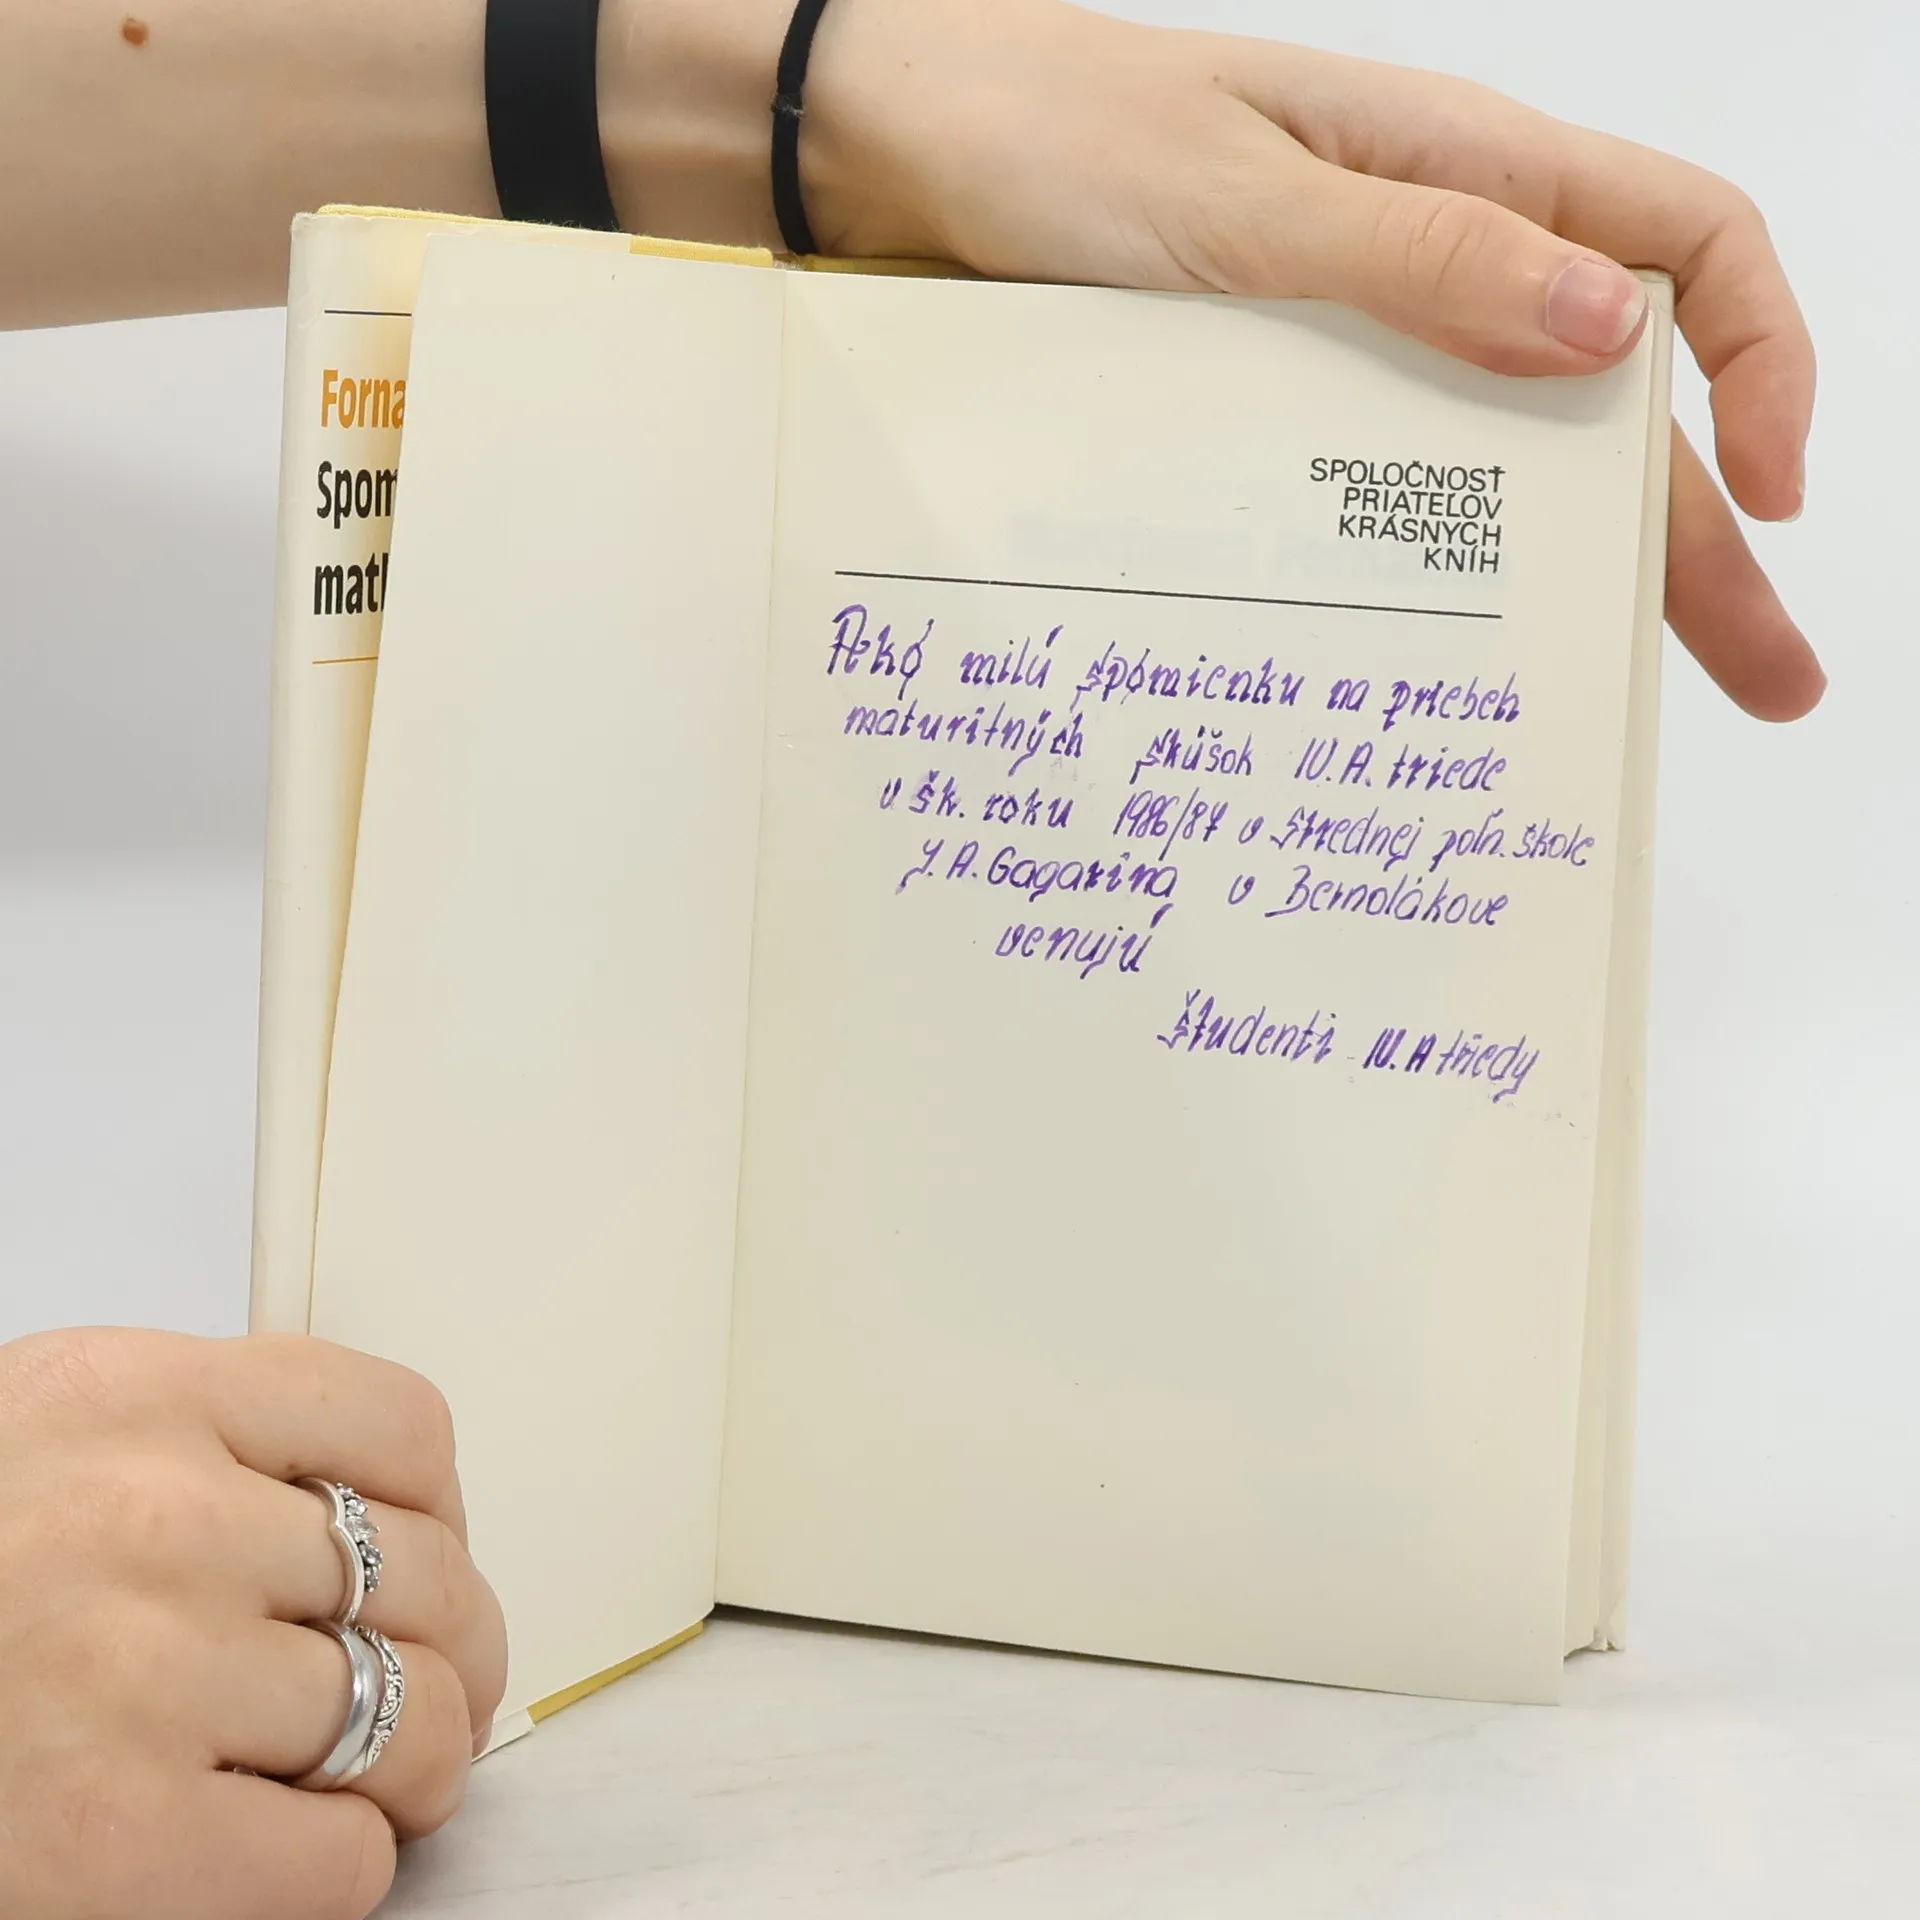 Forna
Spom
matk
SPOLOČNOSŤ
PRIATEĽOV
KRÁSNYCH
KNÍH
Ako milú spomienku na priebeh
maturitných skúšok IV. A. triede
v šk. roku 1986/87 v Strednej poľn. škole
J. A. Gagarina v Bernolákove
venujú
študenti IV. A triedy